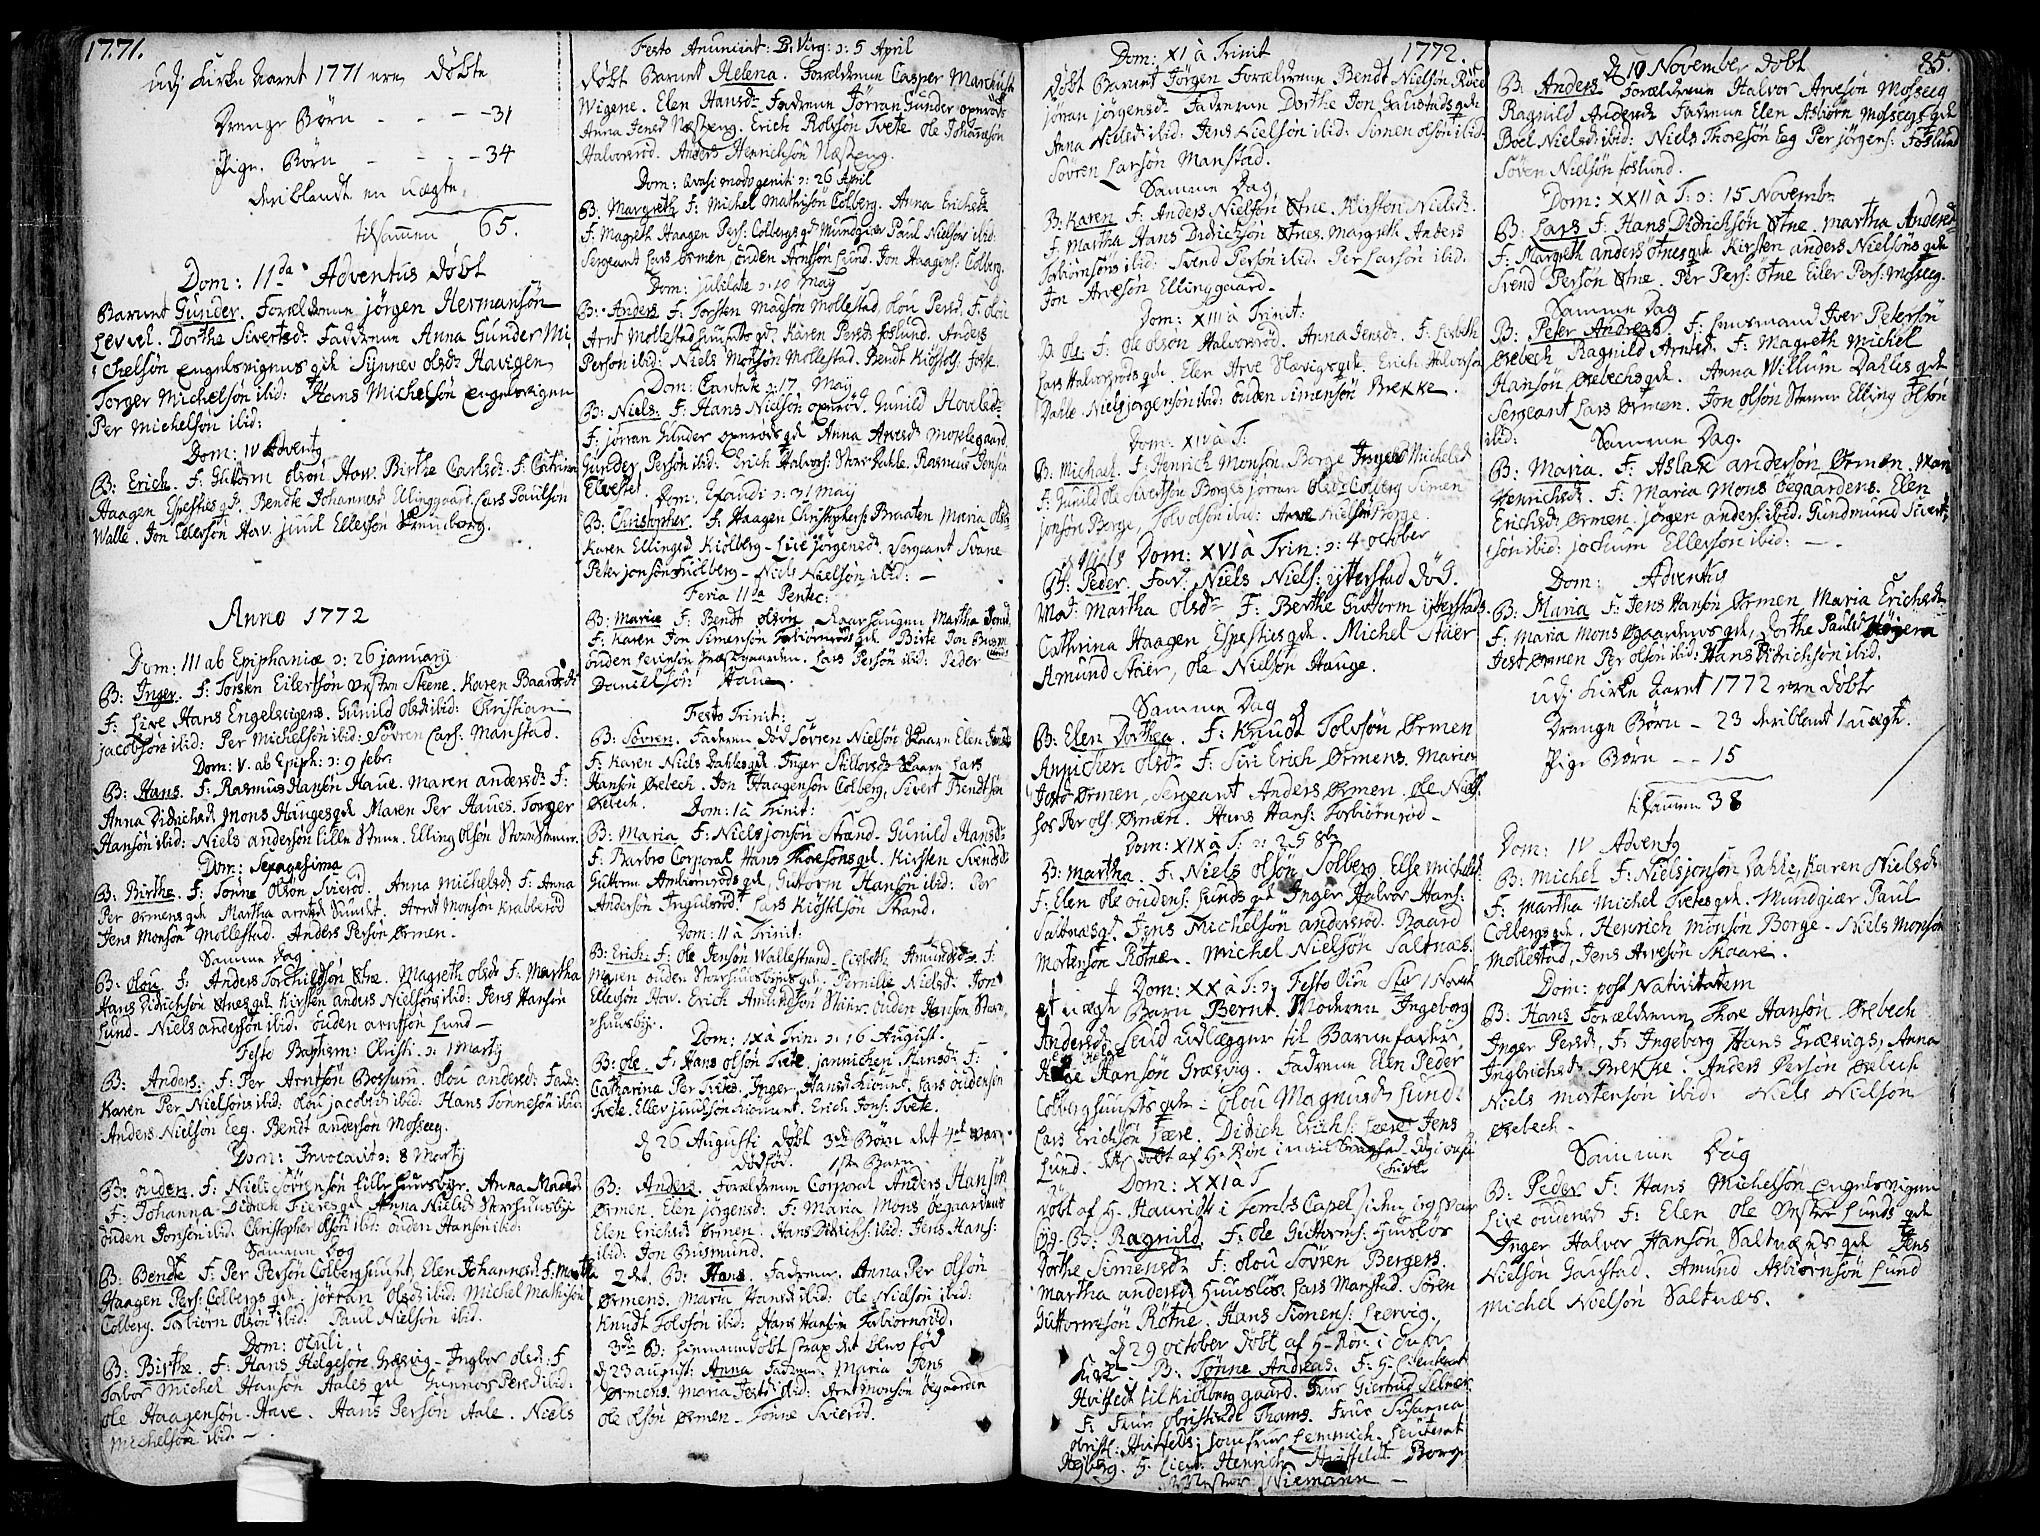 1771.
udj Kirke Aaret 1771 ere døbte
Drenge Børn - - - - 31
Pige Børn - - - - 34
deriblandt en uægte.
tilsammen 65.
Dom: 11da Adventus døbt
Barnet Gunder. Forældrene jörgen Hermansön
Level. Dorthe Sivertsdr. Fadrene Anna Gunder Mi-
chelsön Engelsvigens qde Synnev olsdr Havigen
Torger Michelsön ibid: Hans Michelsön Engelsvigen
Per Michelsön ibid:
Dom: IV Adventy
B: Erich. F: Guttorm olsön Hov. Birthe Carlsdr. F: Catrine
Haagen Espeshies qd. Bendte Johannesd Ellinggaard. Lars Paulsön
Walle. Jon Ellefsön Hov. juul Ellefsön
Anno 1772
Dom: III ab Epiphaniæ ɔ: 26 january
B: Inger. F: Torsten Eilertsön Skene. Karen Baardsdr
F: Live Hans Engelsvigens. Gunild olsdr ibid: Christian
jacobsön ibid: Per Michelsön ibid: Sövren Lars: Manstad.
Dom: V. ab Epiph: ɔ: 9 febr:
B: Hans. F: Rasmus Hansön Haue. Maren andersdr F:
Anna Didrichsd Mons Haugesqd Maren Per Haues. Torger
Hansön ibid: Niels andersön lille Elling olsön
Dom: Sexagesima
B: Birthe. F: Tönne olsön Svieröd. Anna Michelsdr F: Anna
Per Ørmens qde Martha arntsd Sundet. Arnt Monsön Krabberöd
Jens Monsön Mollestad. Anders Persön Ørmen.
Samme Dag
B: olou. F: Anders Torchildsön Øtne. Magreth olsdr F: Martha
Hans Didrichsön Øtnes qde Kirsten anders Nielsöns ibid: Jens Hansön
Lund. Niels andersön ibid. ouden arntsön Lund -
Festo Baptism: Christi ɔ: 1 Martij
B: Anders. F: Per Arntsön Bossum. olou andersdr Fadr:
Karen Per Nielsöns ibid: olou jacobsd ibid: Hans Tönnesön ibid:
Anders Nielsön Eeg. Bendt andersön Mosseeg.
Dom: Invocavit ɔ: 8 Martij
B: ouden. F: Niels Sövrensön lille huusbye. Anna Madsd
F: Johanna Didrich qde Anna Nielsd Storehuusbye
ouden Jonsön ibid. Christopher olsön ibid: ouden Hansön ibid:
Samme Dag
B: Bendte F: Per Persön Colberghuuset, Elen Johannesd F: Martha
Haagen Pers: Colbergs qde. jörran olsdr ibid: Michel Mathisön
Colberg. Torbiörn olsön ibid. Paul Nielsön ibid.
Dom: oculi
B: Birthe. F: Hans Helgesön Græsvig. Ingbor olsd: F
Torbor Michel Hansön Aales qde Gunnor Persd ibid:
ole Haagensön Have. Hans Persön Aale. Niels
Michelsön ibid. -
Festo Anunciat: B. Virg: ɔ: 5 April
døbt Barnet Helena. Forældrene Casper Marchusön
Wigene. Elen Hansdr Fadrene Jörran Gunder
Anna Jensd Næsseng. Erich Rolvsön Tvete ole Johansön
Halvorsröd. Anders Henrichsön Næsseng.
Dom: Qvasi modo geniti ɔ: 26 April
B: Margreth F: Michel Mathisön Colberg. Anna Erichsdr
F: Magreth Haagen Pers: Colbergs qd Mundgiær Paul Nielsöns ibid:
Sergeant Lars Ørmen, ouden Arntsön Lund. Jon Haagens: Colberg.
Dom: jubilate ɔ: 10 May
B: Anders F: Torsten Madsön Mollestad, olou Persd. F: olou
Arnt Mollestad huusets qd. Karen Persd foslund. Anders
Persön ibid: Niels Monsön Mollestad. Bendt
Dom: Cantate ɔ: 17 May
B: Niels. F: Hans Nielsön opnröd. Gunild
F: jörran Gunder opnröds qde Anna Arvesd
Gunder Persön ibid: Erich Halvors: Store Dahle. Rasmus Jensön
Elvested.
Dom: Exaudi ɔ: 31 May
B: Christopher. F: Haagen Christophers: Braaten Maria olsdr
Karen Ellingsd Kiölberg - Live jörgensdr. Sergeant Svane
Peter jonsön Kiölberg - Niels Nielsön ibid: -
Feria IIda Pentec:
B: Marie F: Bendt olsön Martha
F: Karen Jon Simensön Torbiörnröds qd. Birte Jon
ouden Levinsön Præstegaarden. Lars Persön ibid: Peder
Danielsön Haue.
Festo Trinit:
B: Sövren. Faderen død Sövren Nielsön Skaare Elen
F: Karen Niels Dahles qd. Inger Lars
Hansön Ørebech. Jon Haagensön Colberg, Sivert Bendtsön
Ørebech.
Dom: I à Trinit:
B: Maria F: Niels jonsön Strand. Gunild Hansdr
F: Barbro Corporal Hans Thoresöns qd. Kirsten Svendsd:
Guttorm Ambiörnröds qd, Guttorm Hansön ibid: Per
Andersön Ingulsröd. Lars Strand.
Dom: II à Trinit:
B: Erich: F: ole Jensön Wallestrand. Lisbeth Amundsdr. F:
Maren ouden Storehuusbyes qd. Pernille Nielsd: Jon
Ellefsön Hov. Erich Amundsön Staier ouden Hansön Store
huusbye.
Dom: IX à Trin: ɔ: 16 August
B: ole. F: Hans olsön Tvete. jannichen Hansdr F:
Catharina Per Tvetes. Inger Hansd Lars oudensön
Tvete. Ellev juulsön Erich Jons: Tvete.
d 26 Augusti døbt 3de Børn det 4de var
dødfød. 1ste Barn
B: Anders. Forældrene Corporal Anders Hansön
Ørmen. Elen jörgensd: F: Maria Mons Øegaardens
Elen Erichsd Ørmen. Hans Didrichs: ibid: Jens Hans:
ibid: Jon Busmund.
2det B: Hans. Fadrene Anna Per olsön
Ørmens. Maria Hansd ibid: ole Nielsön ibid:
Knudt Tolvsön ibid: Hans Hansön Torbiörnröd.
3de B: hiemmedøbt strax det blev fød
d 23 august: Anna Fadrene Maria Jens
Ørmens. Maria Josts ibid: Arnt Monsön Øegaarden
ole olsön Ørmen. Tönne Svieröd.
Dom: XI à Trinit 1772.
døbt Barnet Jörgen Forældrene Bendt Nielsön
jöran jörgensdr Fadrene Dorthe Jon Gaustads qde
Anna Nielsd ibid: Jens Nielsön ibid: Simen olsön ibid:
Sövren Larsön Manstad.
Samme Dag
B: Karen F: Anders Nielsön Øtne. Kirsten Nielsdr
F. Martha Hans Didrichsön Øtnes. Margreth Anders
Torbiörnsöns ibid: Svend Persön ibid: Per Larsön ibid.
Jon Arvesön Ellinggaard.
Dom: XIII à Trinit:
B ole F: ole olsön Halvorsröd. Anna Jensdr. F: Lisbeth
Lars Halvorsröds qde. Elen Arve qde. Erich Halvorsön
Dahle. Niels jörgensön ibid: ouden Simensön Brekke.
Dom: XIV à T:
B. Michael. F: Henrich Monsön Borge Michelsd
F: Gunild ole Sivertsön Borges jörran olsdr Colberg Simen
jonsön Borge, Tolv olsön ibid: Arve Nielsön Borge.
Niels Dom: XVI à Trin: ɔ: 4 october
B: Peder. Far: Niels Niels: ytterstad død.
Mod: Martha olsdr F: Berthe Guttorm ytterstads
Cathrina Haagen Espeshies qde. Michel Staier
Amund Staier, ole Nielsön Hauge.
Samme Dag
B: Elen Dorthea. F: Knudt Tolvsön Ørmen
Annichen olsdr F: Siri Erich Ørmens. Maria
Josts Ørmen, Sergeant Anders Ørmen. ole Niels:
for Per ols: Ørmen. Hans Hans: Torbiörnröd -
Dom: XIX à T: ɔ: 25 8br
B: Martha. F: Niels olsön Solberg. Else Michelsd:
F: Elen ole oudens: Lunds qde Inger Halvor Hans:
Saltnæs qd. Jens Michelsön andersröd. Baard
Mortensön Rötne. Michel Nielsön Saltnæs.
Dom: XX à T: ɔ: Festo 1 Novbr
et uægte Barn Bernt. Moderen Ingeborg
Andersdr Lund udlægger til Barnefader
Helge Hansön Græsvig. Fadrene Elen Peder
Colberghuusets qde - olou Magnusdr Lund.
Lars Erichsön Leere. Didrich Erichs: Leere Jens
Lund.
Dom: XXI à T
døbt af Hr Hauritz i Tombs Capel siden
B: Ragnild. F: ole Guttorms: Huuslös
Dorthe Simensdr F: olou Sövren Bergers.
Martha andersd Huuslös. Lars Manstad. Sören
Guttormsön Rötne. Hans Simens: Leervig.
d 29 october døbt af Hr Rön i Onsøe
Kirke B: Tönne Andreas. F: Hr Lieutenant
Hvitfeldt til Kiölberg gaard. Frue Giertrud
F: Frue obristinde Thams. Frue Susanna
obristl: Huitfeldt; Jomfrue Lemmich. Leutenat
Hr Lieut: Henrich Huitfeldt Borge
Mester Niemann -
85.
d 10 November døbt
B: Anders Forældrene Halvor Arvesön Mosseeg
Ragnild Andersdr Fadrene Elen Asbiörn Mosseegs qde
Boel Nielsd: ibid: Niels Thoresön Eeg Per jörgens: Foslund
Söven Nielsön foslund.
Dom: XXII à T: ɔ: 15 Novembr
B: Lars F: Hans Didrichsön Øtne. Martha Andersd
F: Margreth anders Øtnes qde Kirsten anders Nielsöns qde
Svend Persön Øtne. Per Pers: Øtne Eiler Pers: Mosseeg.
Samme Dag
B: Peter Andreas. F: huusmand Iver Petersön
Ørebech Ragnild Arntsdr. F: Magreth Michel
Hansön Ørebechs qde. Anna Willum Dahles qde
Sergeant Lars Ørmen. Jon olsön Elling olsön
ibid:
Samme Dag.
B: Maria. F: Aslak andersön Ørmen.
Henrichsd. F: Maria Mons Øegaardens. Elen
Erichsd Ørmen. jörgen anders: ibid. Gundmund Sivert-
sön ibid: jochum Ellevsön ibid: -
Dom: Adventus
B: Maria F: Jens Hansön Ørmen. Maria Erichsdr
F: Maria Mons Øgaardens qde, Dorthe Paulsd
Jost Ørmen Per olsön ibid: Hans Didrichsön ibid.
udj Kirke Aaret 1772 ere døbte
Drenge Børn - 23 deriblant 1 uægte.
Pige Børn - - 15
tilsammen 38
Dom: IV Adventy
B: Michel F: Niels jonsön Dahle, Karen Nielsdr
F: Martha Michel Tvetes qde. Mundgiær Paul
Colbergs qde. Henrich Monsön Borge - Niels Monsön
Mollestad, Jens Arvesön Skaare.
Dom: post Nativitatem
B: Hans Forældrene Thore Hansön Ørebech
Inger Persd, F: Ingeborg Hans Græsvigs, Anna
Ingbrichsd Brekke. Anders Persön Ørebech
Niels Mortensön ibid: Niels Nielsön
Ørebech -
Samme Dag
B: Peder F: Hans Michelsön Engelsvigen
Live oudensd F: Elen ole Lunds qde
Inger Halvor Hansön Saltnæs qde Jens
Nielsön Gaustad. Amund Asbiörnsön Lund
Michel Nielsön Saltnæs.